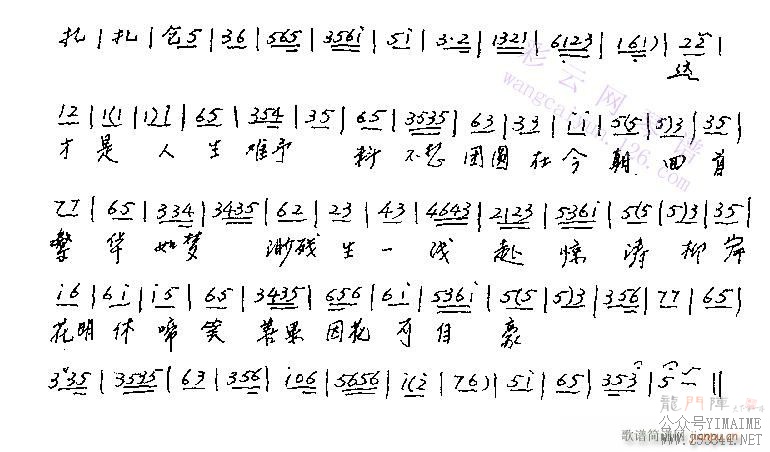 扎 | 扎 | 仓5 | 36 | 565 | 356i | 5i | 3·2 | 1321 | 6123 | 161) | 22 |
这
12 | 1(1 | 1)1 | 65 | 354 | 35 | 65 | 3535 | 63 | 33 | ii | 5(5 | 5)3 | 35 |
才是 人生难予 料 不想团圆在今朝 回首
77 | 65 | 334 | 3435 | 62 | 23 | 43 | 4643 | 2123 | 536i | 5(5 | 5)3 | 35 |
繁华如梦 渺残生一线赴惊涛柳岸
i6 | 6i | i5 | 65 | 3435 | 656 | 6i | 536i | 5(5 | 5)3 | 356 | 77 | 65 |
花明休啼笑善果因花可自豪
335 | 3535 | 63 | 356 | i06 | 5656 | i(i | 76) | 5i | 65 | 353 | 5 - ||
彩云网
wangcaiyun.126.com
龍門陣
公众号YIMAIME
歌谱简谱网 jianpu.cn